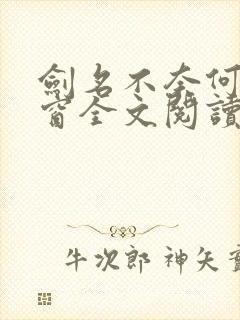 劍名不奈何
窗全文閱讀
牛次郎 神矢